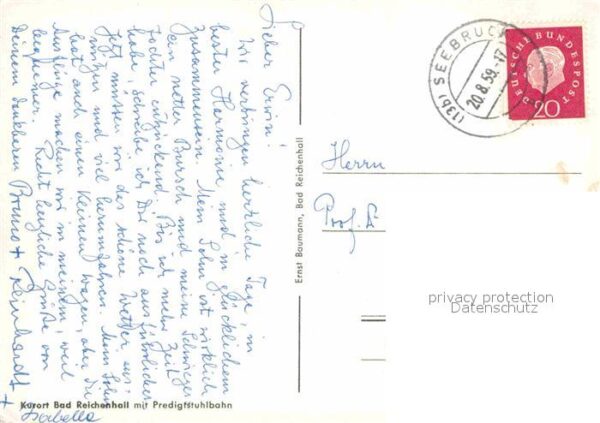 Lieber Erwin!
Wir verbringen herrliche Tage, in
bester Harmonie und in glücklichem
Zusammensein. Mein Sohn ist wirklich
ein netter Bursch und meine Schwieger
tochter entzückend. Bis ich mehr Zeit
habe, schreibe ich Dir noch ausführlicher.
Jetzt müssen wir das schöne Wetter aus-
nützen und viel herumfahren. Mein Sohn
hat auch einen kleinen Wagen, aber die
Ausflüge machen wir in meinem, weil
bequemer. Recht herzliche Grüße von
Deinem dankbaren Bruno + Reinhardt
+ Isabella
Kurort Bad Reichenhall mit Predigtstuhlbahn
Ernst Baumann, Bad Reichenhall
(13b) SEEBRUCK
20.8.59.-17
DEUTSCHE BUNDESPOST
20
Herrn
Prof. D
privacy protection
Datenschutz